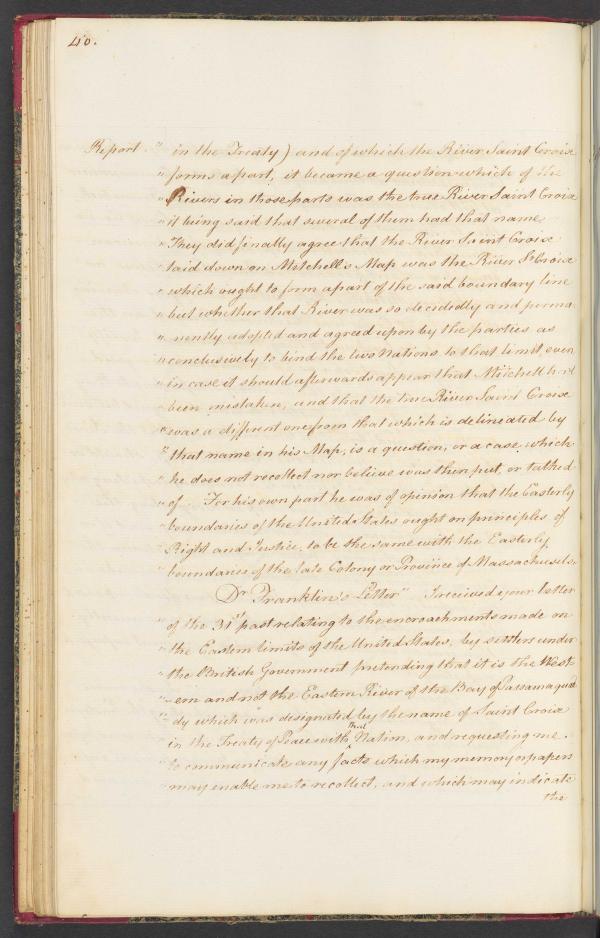 40.
Report. " in the Treaty) and of which the River Saint Croix
" forms a part, it became a question which of the
" Rivers in those parts was the true River Saint Croix
" it being said that several of them had that name
" They did finally agree that the River Saint Croix
" laid down on Mitchell's Map was the River St Croix
" which ought to form a part of the said boundary line
" but whether that River was so decidedly and perma
" nently adopted and agreed upon by the parties as
" conclusively to bind the two Nations to that limit, even
" in case it should afterwards appear that Mitchell had
" been mistaken, and that the true River Saint Croix
" was a different one from that which is deliniated by
" that name in his Map, is a question, or a case which
" he does not recollect nor believe was then put, or talked
" of. For his own part he was of opinion that the Easterly
" boundaries of the United States ought on principles of
" Right and Justice, to be the same with the Easterly
" boundaries of the late Colony or Province of Massachusets.
Dr Franklin's Letter " I received your letter
" of the 31st past relating to the encroachments made on
" the Eastern limits of the United States, by settlers under
" the British Government pretending that it is the West-
" ern and not the Eastern River of the Bay of Passamaquod
" dy which was designated by the name of Saint Croix
" in the Treaty of Peace with that Nation, and requesting me
" to communicate any facts which my memory or papers
" may enable me to recollect, and which may indicate
the